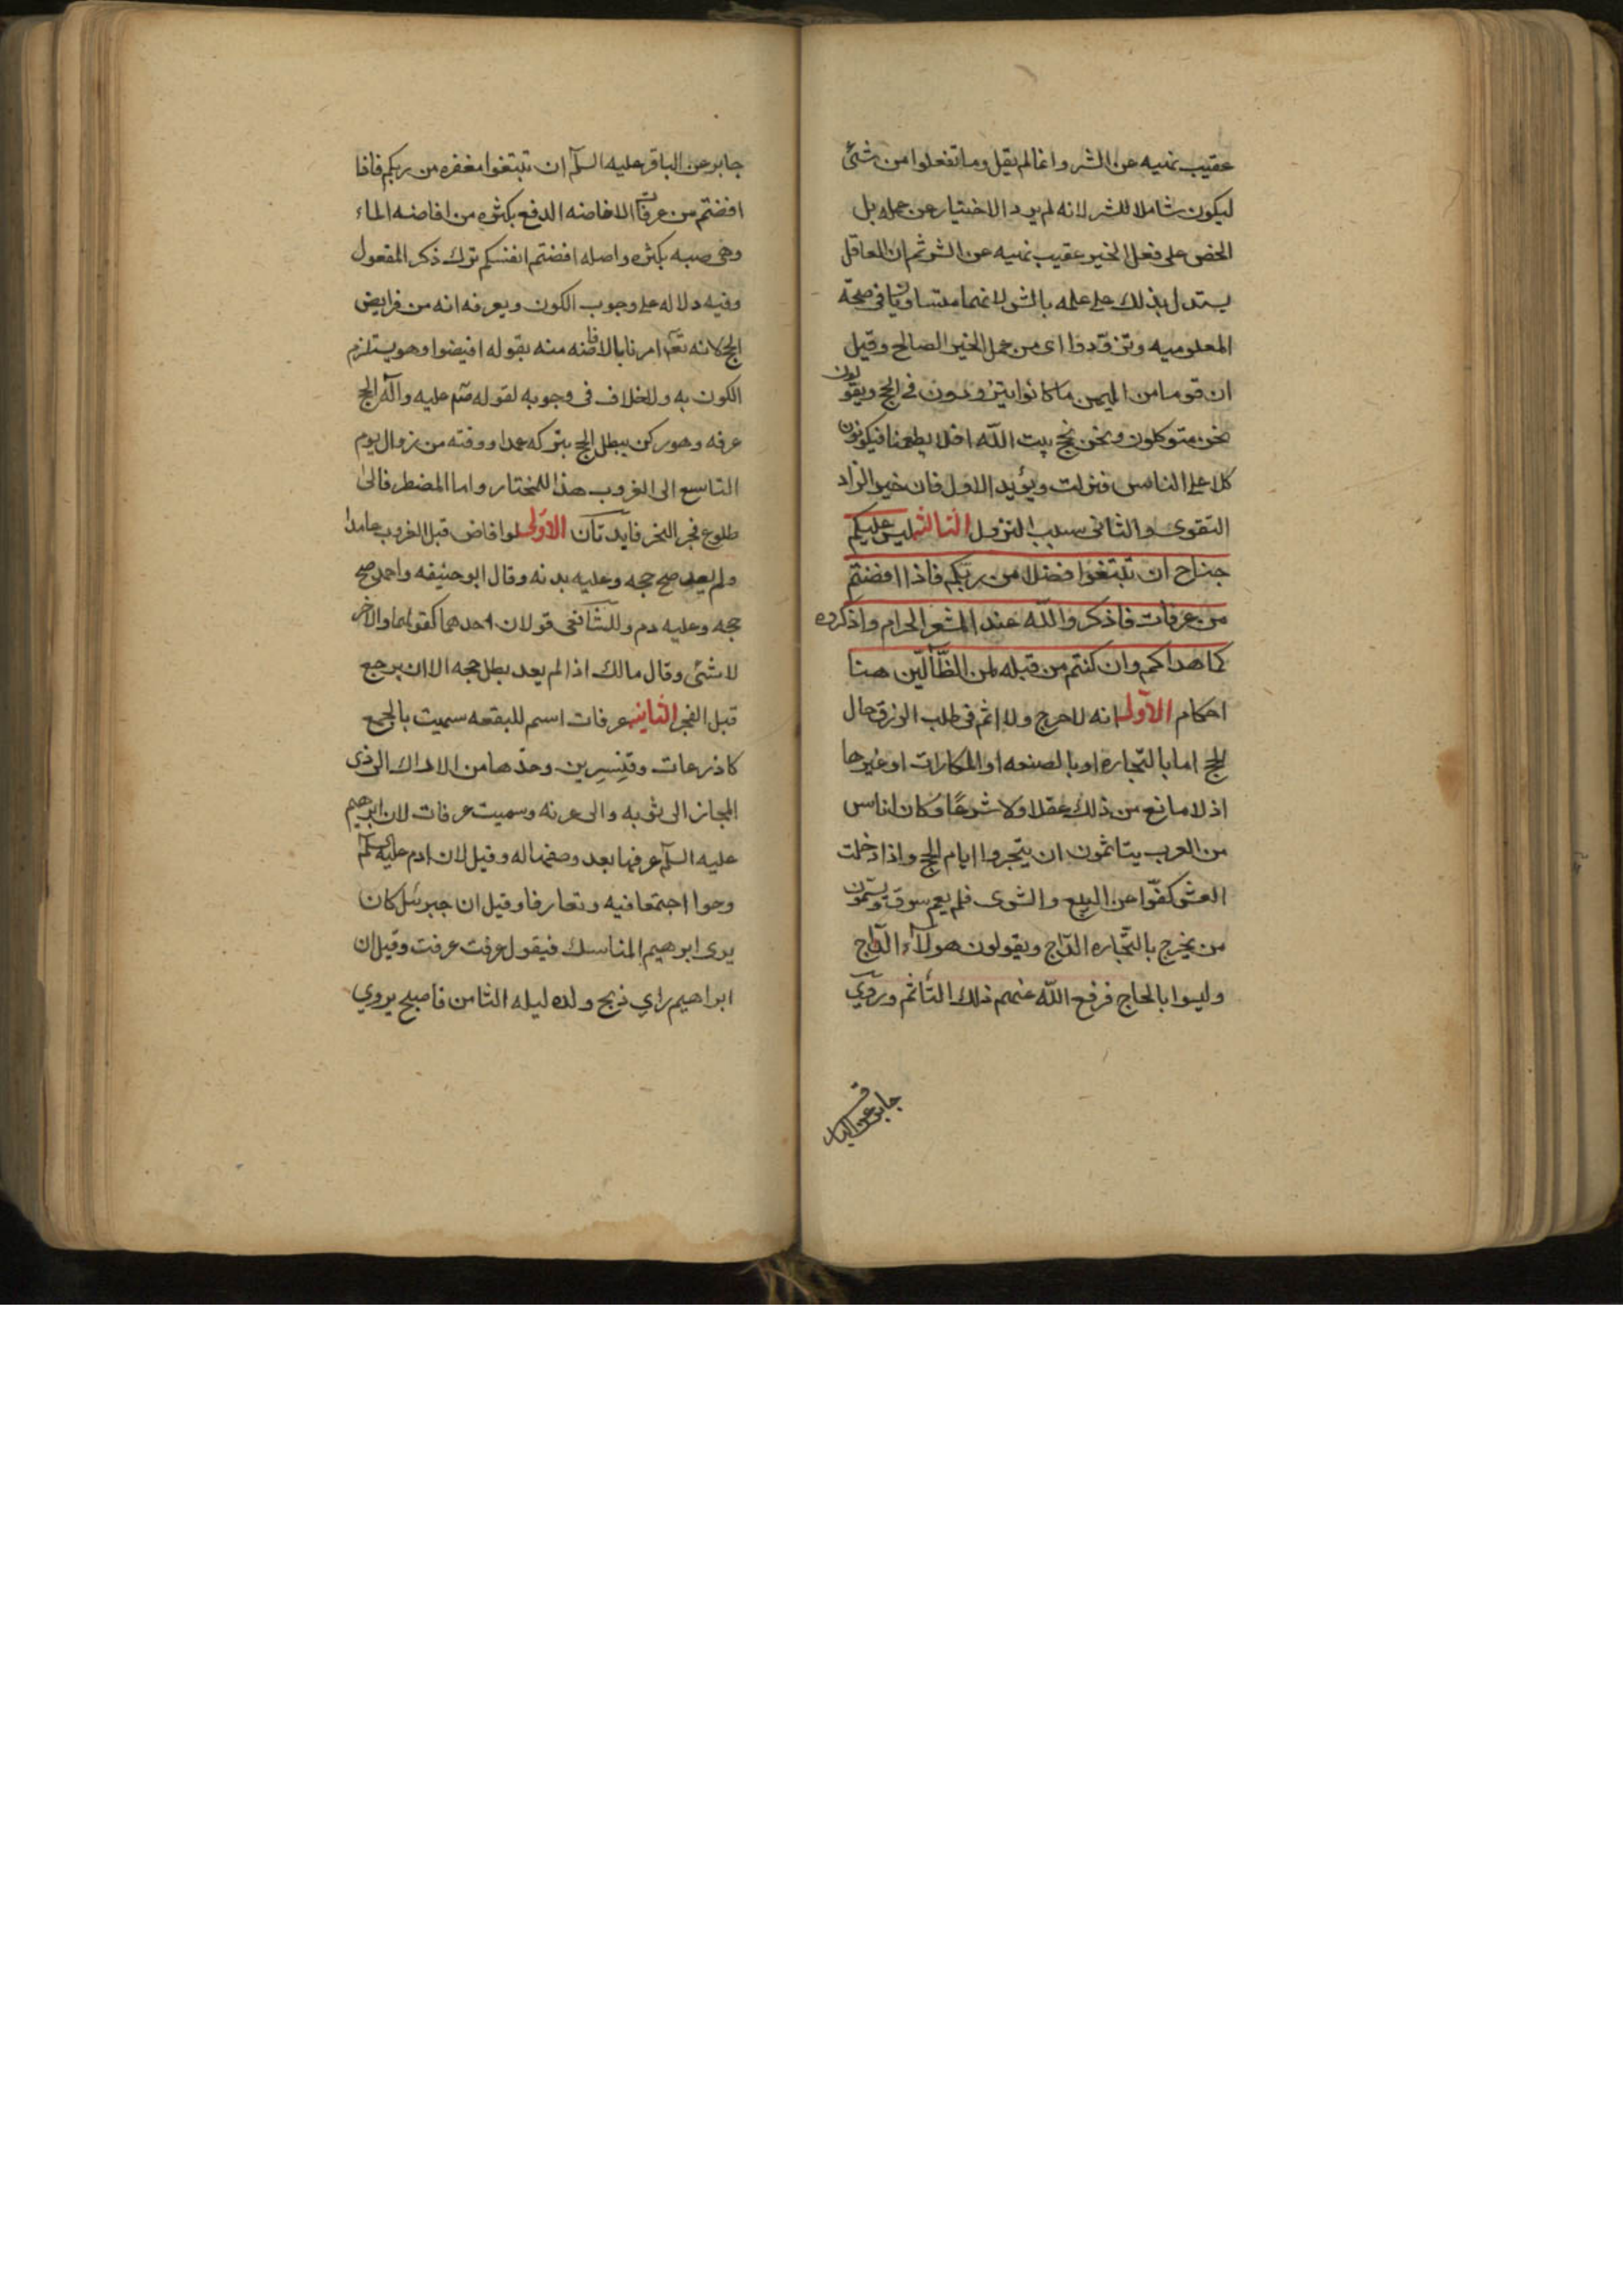 عقيب نهيه عن الشر وانما لم يقل وما تفعلوا من شئ
ليكون شاملا للشر لانه لم يرد الاخبار عن جمله بل
الحض على فعل الخير عقيب نهيه عن الشر ثم ان العاقل
يستدل بذلك على علمه بالشر لانهما متساويان فى صحة
المعلوميه وتزودوا اى من عمل الخير الصالح وقيل
ان قوما من اليمن ما كانوا يتزودون فى الحج ويقولون
نحن متوكلون ونحن نحج بيت الله افلا يطعمنا فيكونون
كلا على الناس فنزلت ويؤيد الاول فان خير الزاد
التقوى والثانى سبب النزول الثالثه ليس عليكم
جناح ان تبتغوا فضلا من ربكم فاذا افضتم
من عرفات فاذكروا الله عند المشعر الحرام واذكروه
كما هداكم وان كنتم من قبله لمن الظّآلّين هنا
احكام الاوّل انه لا حرج ولا اثم فى طلب الرزق حال
الحج اما بالتجاره او بالصنعه او المكارات او غيرها
اذ لا مانع من ذلك عقلا ولا شرعًا وكان اناس
من العرب يتاثمون ان يتجروا ايام الحج واذا دخلت
العشر كفّوا عن البيع والشرى فلم يقم سوق ويسمّون
من يخرج بالتّجاره الدّاج ويقولون هولآء الدّاج
وليسوا بالحاج فرفع الله عنهم ذلك التأثم وروى
جابر عن الباقر
جابر عن الباقر عليه السلم ان تبتغوا مغفره من ربكم فاذا
افضتم من عرفات الافاضه الدفع بكثره من افاضه الماء
وهى صبه بكثره واصله افضتم انفسكم ترك ذكر المفعول
وفيه دلاله على وجوب الكون وبعرفه انه من فرايض
الحج لانه تعه امرنا بالافاضه منه بقوله افيضوا وهو يستلزم
الكون به ولا خلاف فى وجوبه لقوله صلم عليه وآله الحج
عرفه وهو ركن يبطل الحج بتركه عمدا ووقته من زوال يوم
التاسع الى الغروب هذا للمختار واما المضطر فالى
طلوع فجر النحر فايدتان الاوّلى لو افاض قبل الغروب عامدا
ولم يعد صح حجه وعليه بدنه وقال ابو حنيفه واحمد صح
حجه وعليه دم وللشافعى قولان احدهما كقولهما والاخر
لا شئى وقال مالك اذا لم يعد بطل حجه الا ان يرجع
قبل الفجر الثانيه عرفات اسم للبقعه سميت بالجمع
كاذرعات وقنسرين وحدّها من الاراك الى ذى
المجاز الى ثويه والى عرنه وسميت عرفات لان ابرهيم
عليه السلم عرفها بعد وصفها له وقيل لان ادم عليه السلم
وحوا اجتمعا فيه وتعارفا وقيل ان جبرئيل كان
يرى ابرهيم المناسك فيقول عرفت عرفت وقيل ان
ابراهيم راي ذبح ولده ليله الثامن فاصبح يروي